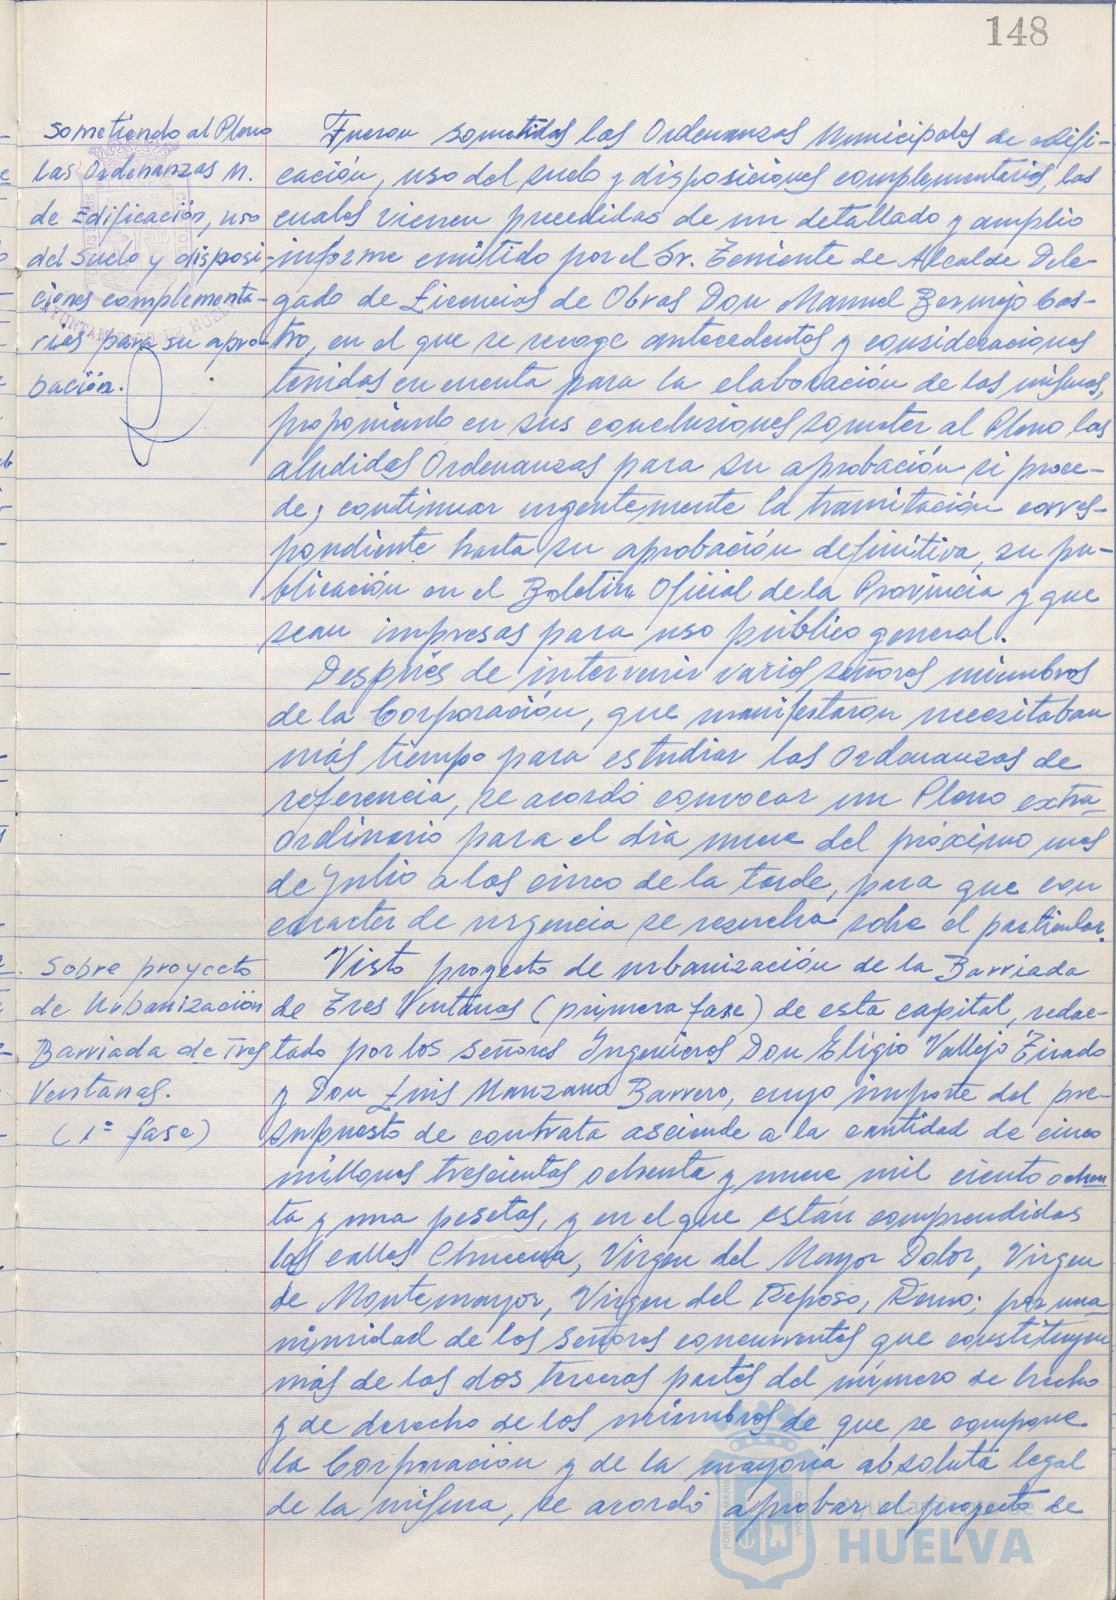 148
Sometiendo al Pleno
las Ordenanzas M.
de Edificación, uso
del suelo y disposi-
ciones complementa-
rias para su apro-
bación.
Fueron sometidas las Ordenanzas Municipales de edifi-
cación, uso del suelo y disposiciones complementarias, las
cuales vienen precedidas de un detallado y amplio
informe emitido por el Sr. Teniente de Alcalde Dele-
gado de Licencias de Obras Don Manuel Bermejo Cas-
tro, en el que se recoge antecedentes y consideraciones
tenidas en cuenta para la elaboración de las mismas,
proponiendo en sus conclusiones someter al Pleno las
aludidas Ordenanzas para su aprobación si proce-
de; continuar urgentemente la tramitación corres-
pondiente hasta su aprobación definitiva, su pu-
blicación en el Boletín Oficial de la Provincia y que
sean impresas para uso público general.
Después de intervenir varios señores miembros
de la Corporación, que manifestaron necesitaban
más tiempo para estudiar las Ordenanzas de
referencia, se acordó convocar un Pleno extra-
ordinario para el día nueve del próximo mes
de Julio a las cinco de la tarde, para que con
caracter de urgencia se resuelva sobre el particular.
Sobre proyecto
de Urbanización
Barriada de Tres
Ventanas.
(1ª fase)
Visto proyecto de urbanización de la Barriada
de Tres Ventanas (primera fase) de esta capital, redac-
tado por los señores Ingenieros Don Eligio Vallejo Tirado
y Don Luis Manzano Barrero, cuyo importe del pre-
supuesto de contrata asciende a la cantidad de cinco
millones trescientas ochenta y nueve mil ciento ochen
ta y una pesetas, y en el que están comprendidas
las calles Chucena, Virgen del Mayor Dolor, Virgen
de Montemayor, Virgen del Reposo, por una
nimidad de los señores concurrentes que constituyen
más de las dos terceras partes del número de hecho
y de derecho de los miembros de que se compone
la Corporación y de la mayoría absoluta legal
de la misma, se acordó aprobar el proyecto de
Ayuntamiento de
HUELVA